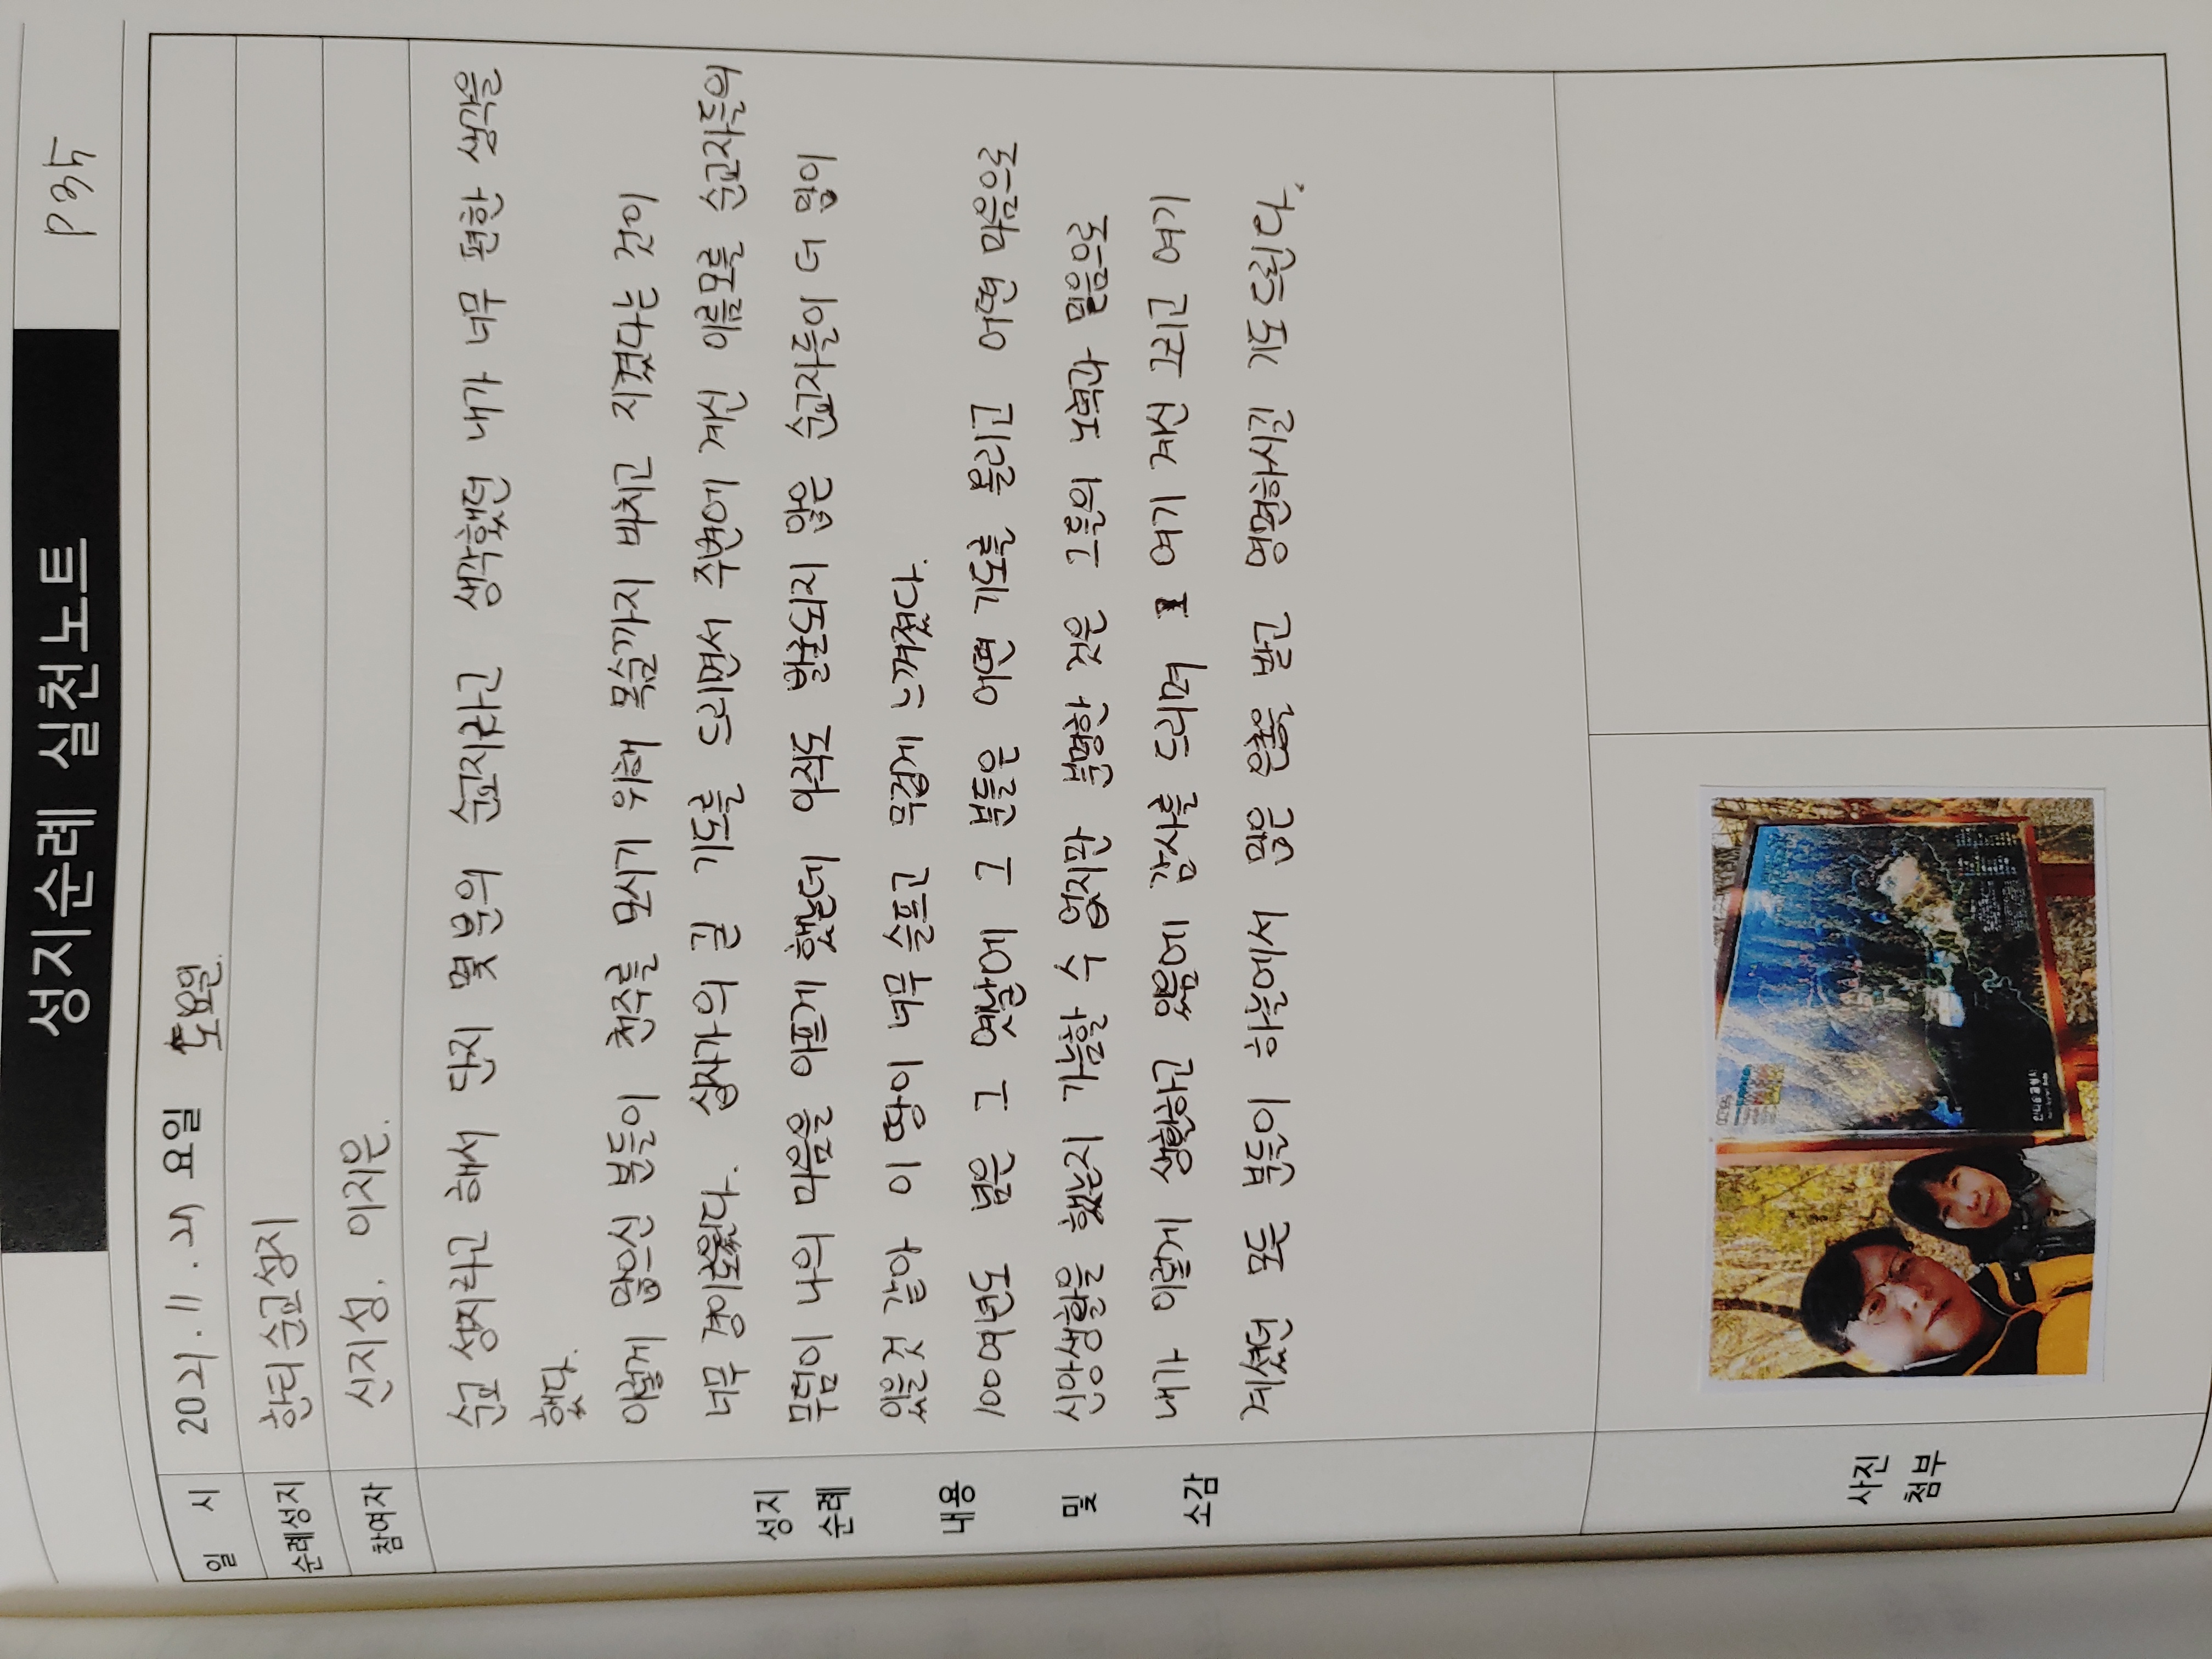 성지순례 실천노트
P35
일 시
2021. 11. 27 요일 토요일.
순례성지
한티순교성지
참여자
신지성, 이지은.
성지
순례
내용
및
소감
순교 성지라고 해서 단지 몇 분의 순교지라고 생각했던 내가 너무 편한 생각을
했다.
이렇게 많으신 분들이 천주를 모시기 위해 목숨까지 바치고 지켰다는 것이
너무 경이로웠다. 십자가의 길 기도를 드리면서 주변에 계신 이름모를 순교자들의
무덤이 나의 마음을 아프게 했는데 아직도 발굴되지 않은 순교자들이 더 많이
있을것 같아 이 땅이 너무 슬프고 무겁게 느껴졌다.
100여년도 넘은 그 옛날에 그 분들은 어떤 기도를 올리고 어떤 마음으로
신앙생활을 했는지 가늠할 수 없지만 분명한 것은 그들의 노력과 믿음으로
내가 이렇게 생활하고 있음에 감사를 드리며 여기 계신 그리고 여기
계셨던 모든 분들이 하늘에서 많은 은총을 받고 영면하시길 기도 드린다.
사진
첨부
한티순교성지